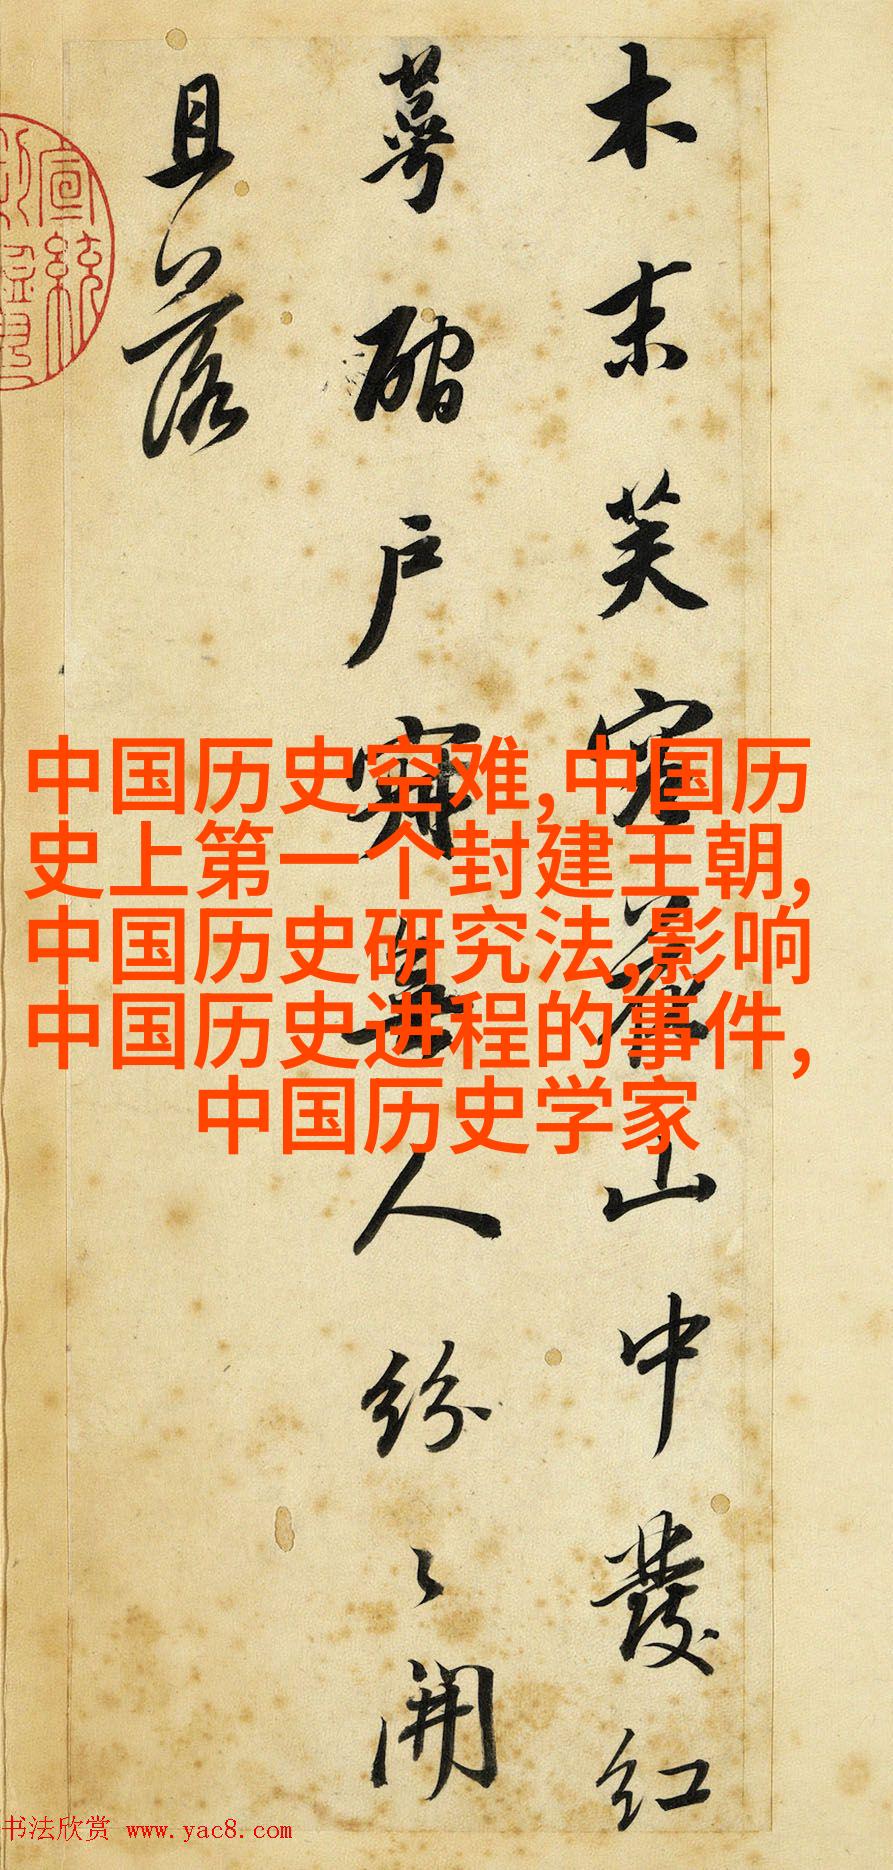 木末芙容華山中發紅
萼磵戶寂無人紛〻開
且落
宣統
中国历史空难,中国历
史上第一个封建王朝,
中国历史研究法,影响
中国历史进程的事件,
中国历史学家
书法欣赏 www.yac8.com